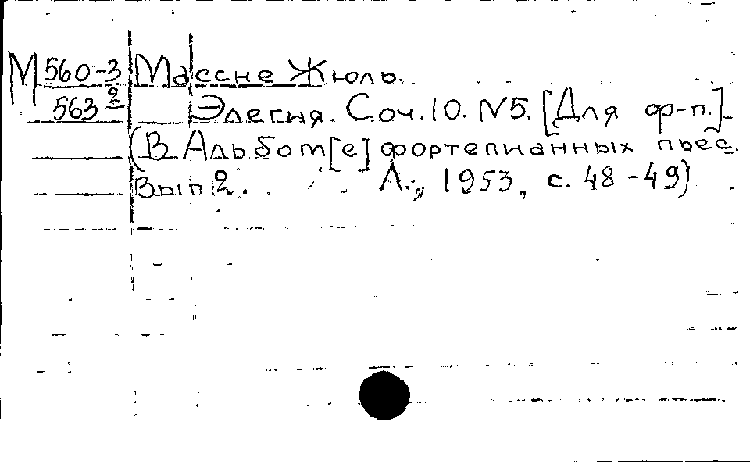 М 560-3 Массне Жюль.
563 2 Элегия. Соч.10. N5. [Для ф-п.]
(В Альбом[е] фортепианных пьес.
Вып 2. Л., 1953, с. 48-49)